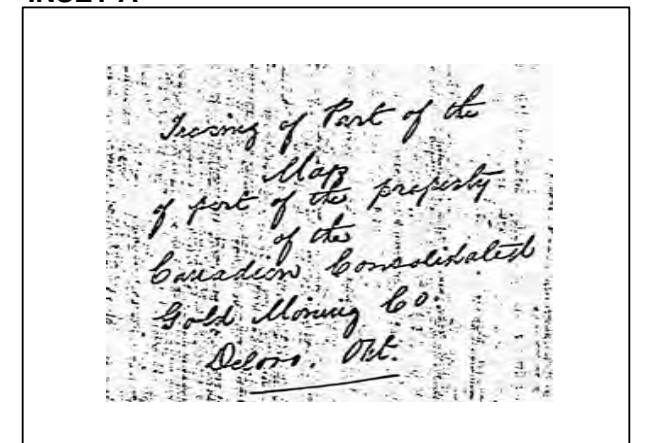 INSET A
Tracing of Part of the
Map
of part of the property
of the
Canadian Consolidated
Gold Mining Co.
Deloro. Ont.